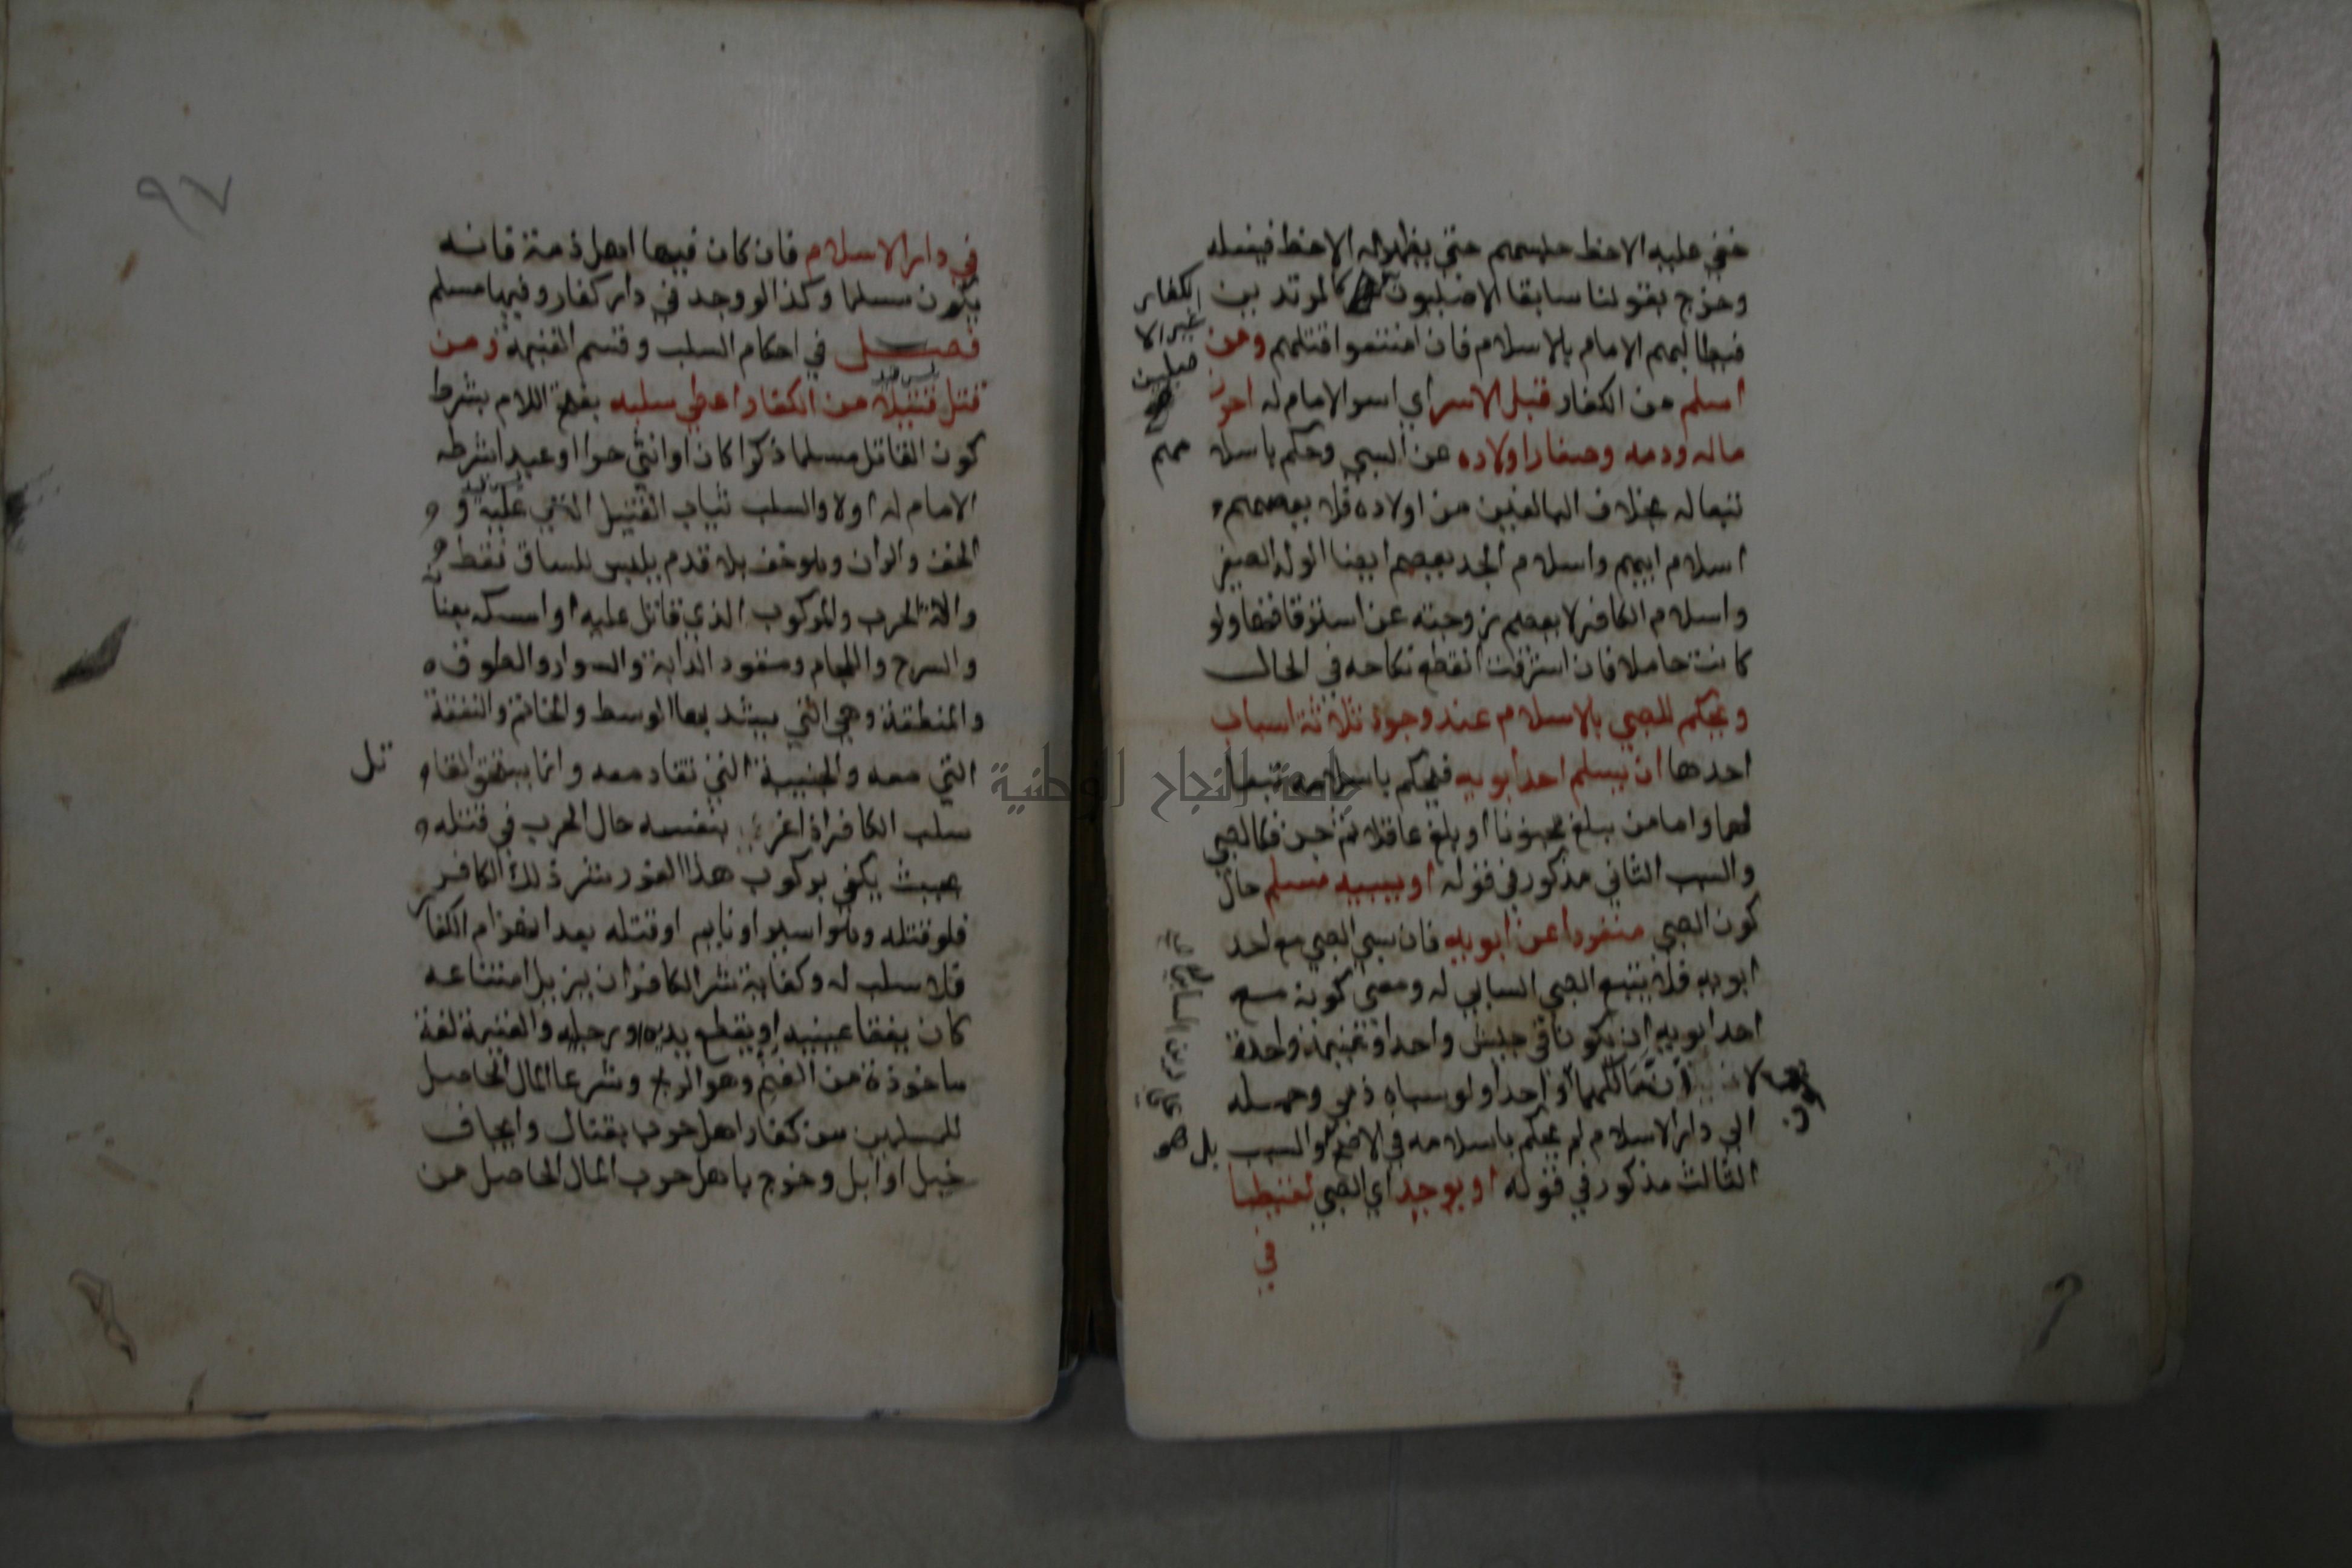 خفي عليه الاحظ حبسهم حتي يظهر له الاحظ فيفعله
وخرج بقولنا سابقا الاصليون كالمرتدين
فيطالبهم الامام بالاسلام فان امتنعوا قتلهم ومن
اسلم من الكفار قبل الاسر اي اسر الامام له احرز
ماله ودمه وصغار اولاده عن السبي وحكم باسلا
مهم
تبعا له بخلاف البالغين من اولاده فلا يعصمهم
اسلام ابيهم واسلام الجد يعصم ايضا الولد الصغير
واسلام الكافر لا يعصم زوجته عن استرقاقها ولو
كانت حاملا فان استرقت انقطع نكاحه في الحال
ويحكم للصبي بالاسلام عند وجود ثلاثة اسباب
احدها ان يسلم احد ابويه فيحكم باسلامه تبعا
لهما واما من بلغ مجنونا او بلغ عاقلا ثم جن فكالصبي
والسبب الثاني مذكور في قوله او يسبيه مسلم حال
كون الصبي منفردا عن ابويه فان سبي الصبي مع احد
ابويه فلا يتبع الصبي السابي له ومعني كونه مع
احد ابويه ان يكونا في جيش واحد وغنيمة واحدة
لا ان مالكهما واحد ولو سباه ذمي وحمله
الي دار الاسلام لم يحكم باسلامه في الاصح والسبب
بل هو
الثالث مذكور في قوله او يوجد اي الصبي لقيطا
في
الكفار
غير الا
صليين
علي دين السابي له
٩٧
في دار الاسلام فان كان فيها اهل ذمة فانه
يكون مسلما وكذا لو وجد في دار كفار وفيها مسلم
فصل في احكام السلب وقسم الغنيمة ومن
قتل قتيلا من الكفار اعطي سلبه بفتح اللام بشرط
كون القاتل مسلما ذكرا كان او انثي حرا او عبدا شرطه
الامام له او لا والسلب ثياب القتيل التي عليه و
الخف والران وهو خف بلا قدم يلبس للساق فقط
والة الحرب والمركوب الذي قاتل عليه او امسكه بعنا
والسرج واللجام ومقود الدابة والسوار والطوق
والمنطقة وهي التي يشد بها الوسط والخاتم والنفقة
التي معه والجنيبة التي تقاد معه وانما يستحق القا
تل
سلب الكافر اذا غرر بنفسه حال الحرب في قتله
بحيث يكفي بركوب هذا الغرر شر ذلك الكافر
فلو قتله وهو اسير او نايم او قتله بعد انهزام الكفار
فلا سلب له وكفاية شر الكافر ان يزيل امتناعه
كان يفقا عينيه او يقطع يديه ورجليه والغنيمة لغة
ماخوذة من الغنم وهو الربح وشرعا المال الحاصل
للمسلمين من كفار اهل حرب بقتال وايجاف
خيل او ابل وخرج باهل حرب المال الحاصل من
جامعة النجاح الوطنية